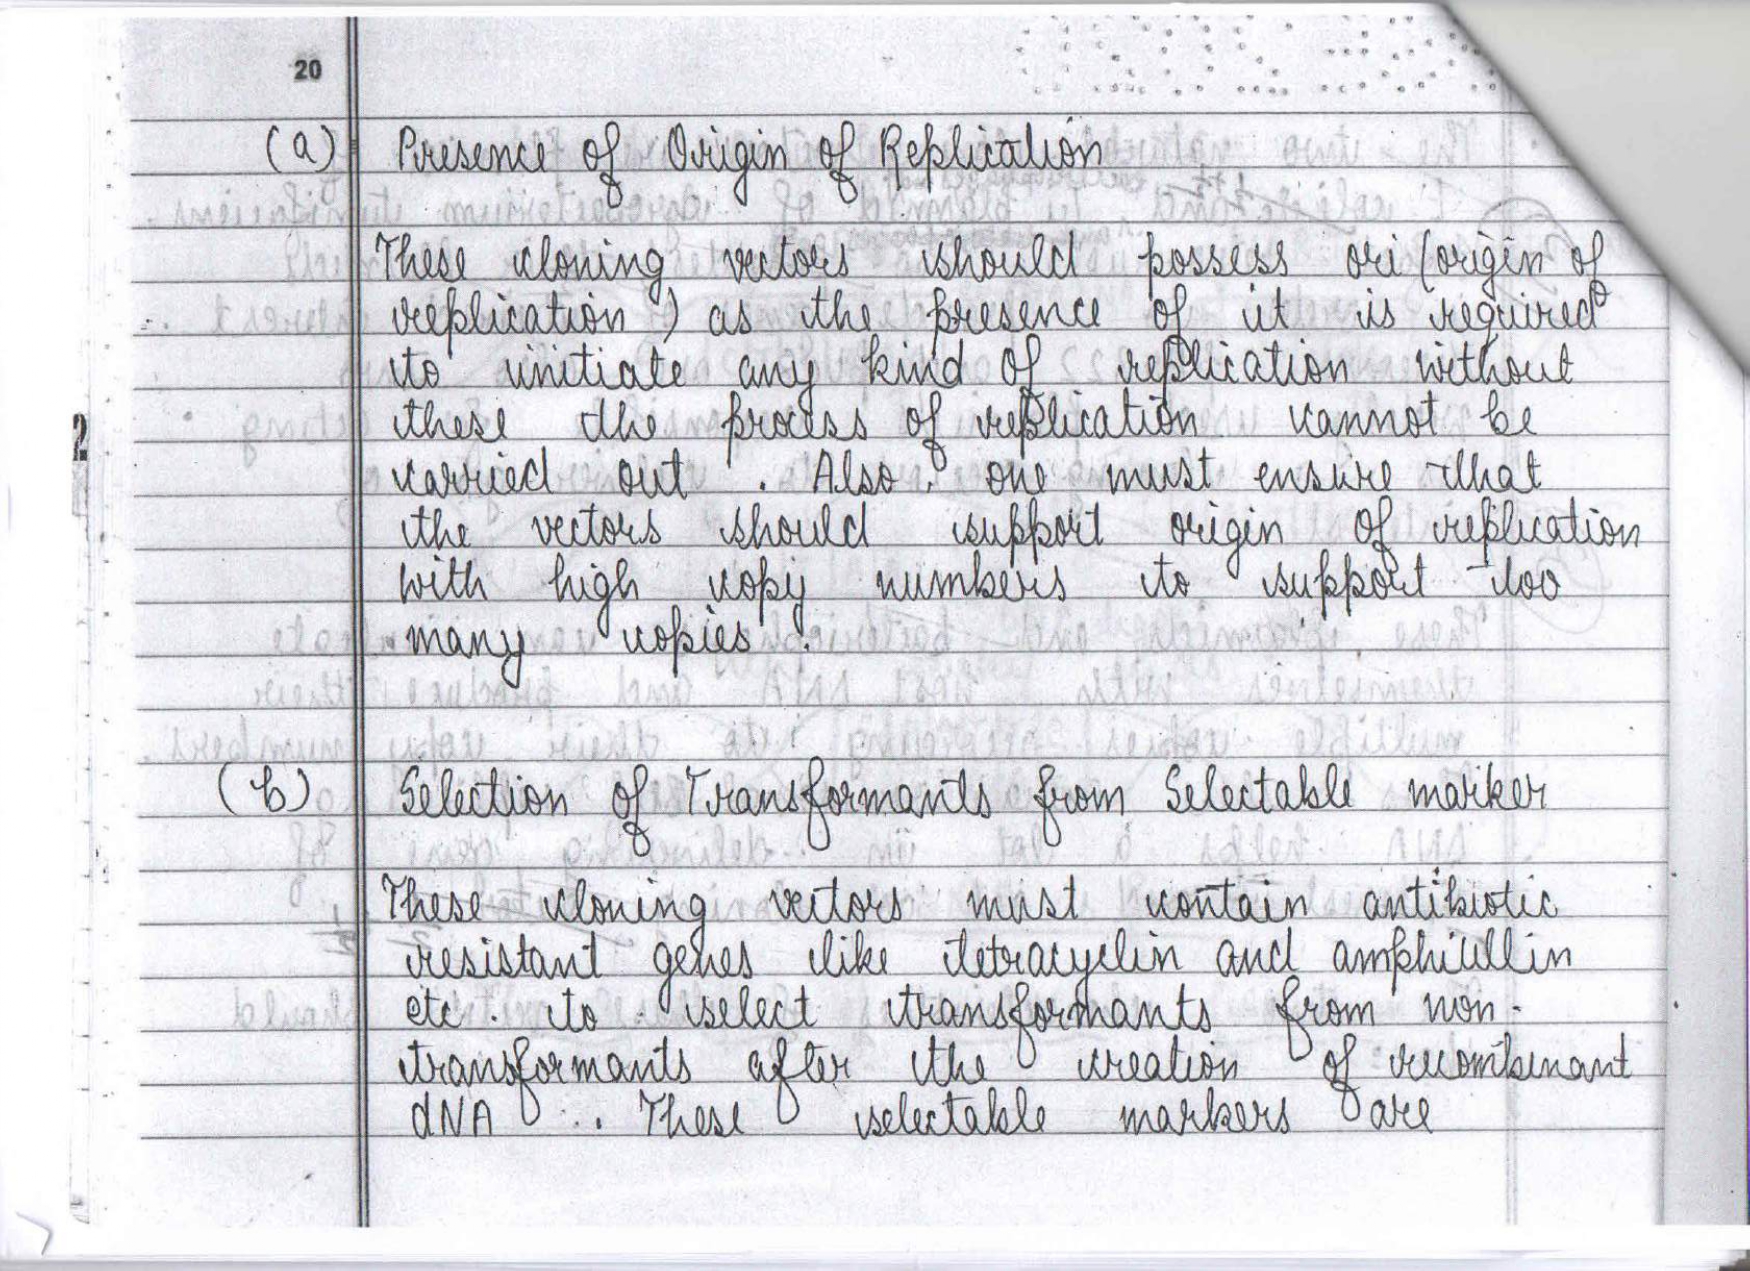 20
(a) Presence of Origin of Replication
These cloning vectors should possess ori (origin of
replication) as the presence of it is required
to initiate any kind of replication without
these the process of replication cannot be
carried out. Also, one must ensure that
the vectors should support origin of replication
with high copy numbers to support too
many copies.
(b) Selection of Transformants from Selectable marker
These cloning vectors must contain antibiotic
resistant genes like tetracyclin and amphicillin
etc. to select transformants from non-
transformants after the creation of recombinant
dNA. These selectable markers are